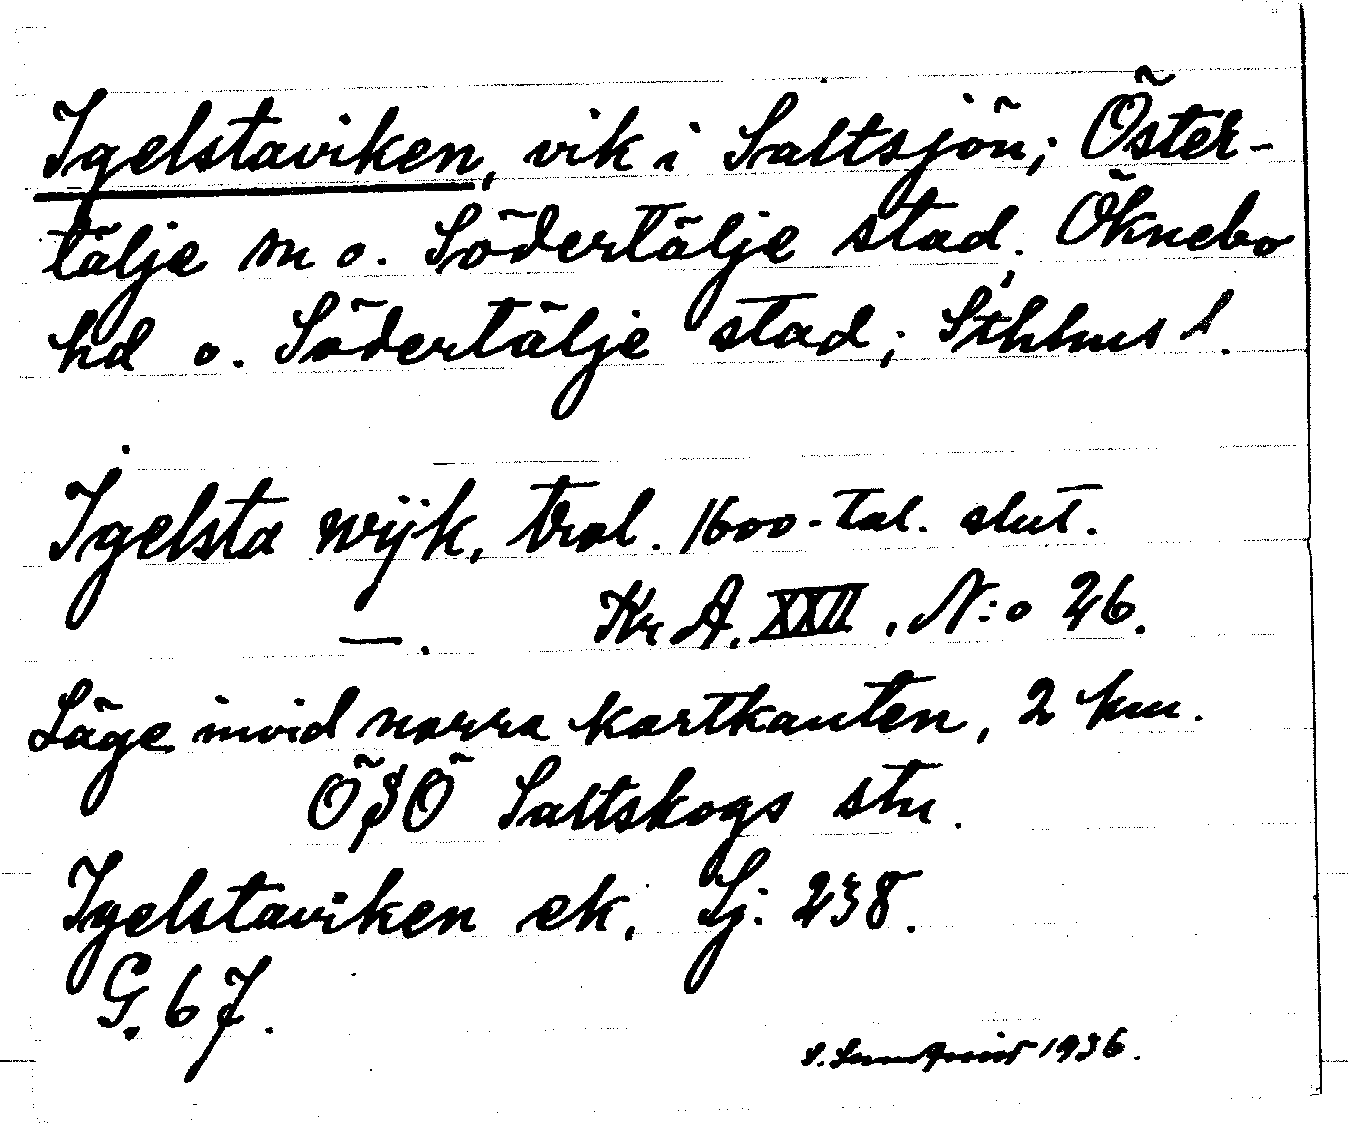 Igelstaviken, vik i Saltsjön; Öster-
tälje sn o. Södertälje stad, Öknebo
hd o. Södertälje stad; Sthlms l.
Igelsta wijk, trol. 1600-tal. slut.
—. Kr A. XXII, N:o 26.
Läge invid norra kartkanten, 2 km.
ÖSÖ Saltskogs stn.
Igelstaviken ek. Lj: 238.
G. 67.
S. Lundquist 1936.